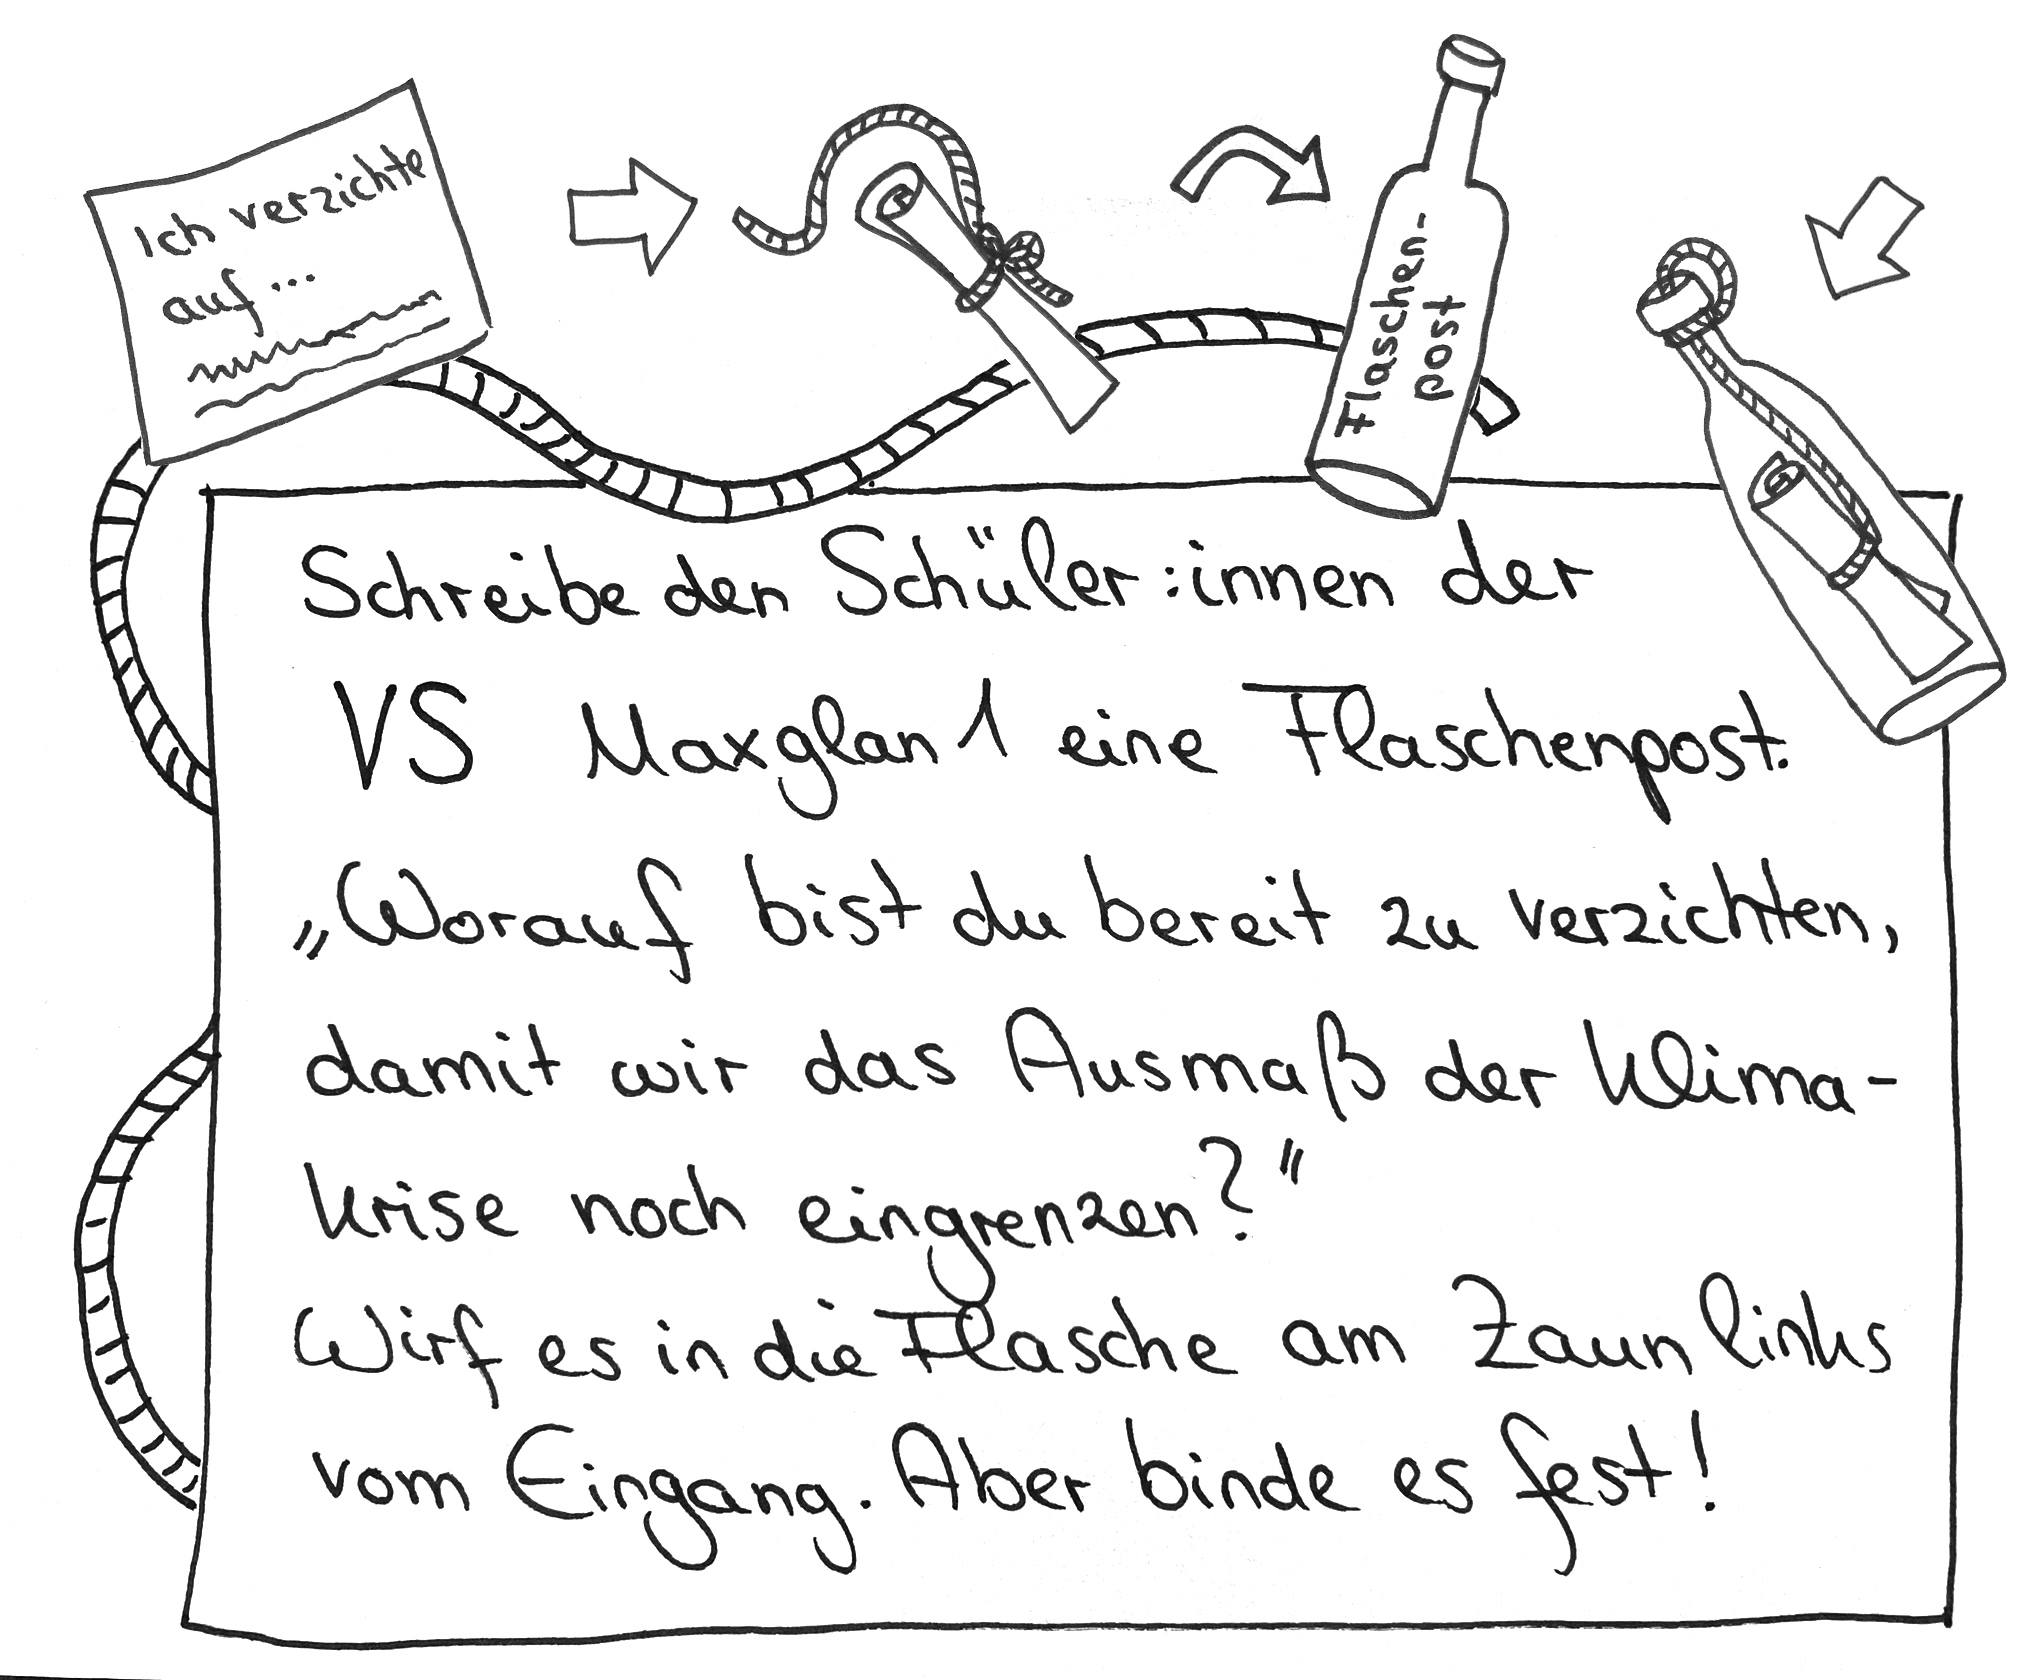 Ich verzichte
auf...
Flaschen-
post
Schreibe den Schüler:innen der
VS Maxglan 1 eine Flaschenpost.
„Worauf bist du bereit zu verzichten,
damit wir das Ausmaß der Klima-
krise noch eingrenzen?"
Wirf es in die Flasche am Zaun links
vom Eingang. Aber binde es fest!